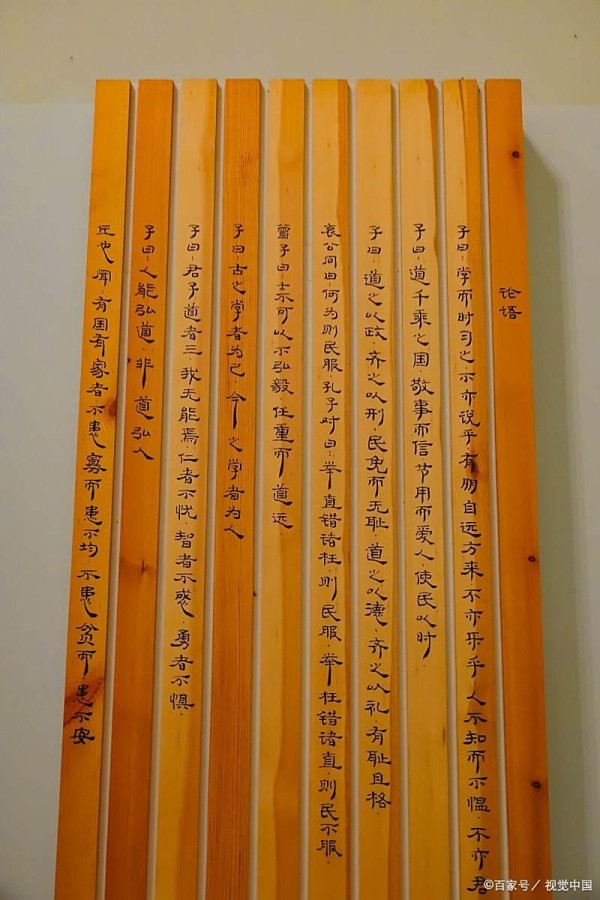 论语
子曰：学而时习之，不亦说乎，有朋自远方来，不亦乐乎，人不知而不愠，不亦君
子曰：道千乘之国，敬事而信，节用而爱人，使民以时．
子曰：道之以政，齐之以刑，民免而无耻，道之以德，齐之以礼，有耻且格．
哀公问曰：何为则民服，孔子对曰：举直错诸枉，则民服，举枉错诸直，则民不服．
曾子曰：士不可以不弘毅，任重而道远．
子曰：古之学者为己，今之学者为人
子曰：君子道者三，我无能焉，仁者不忧，智者不惑，勇者不惧．
子曰：人能弘道，非道弘人
丘也闻，有国有家者不患寡而患不均，不患贫而患不安
©百家号／视觉中国